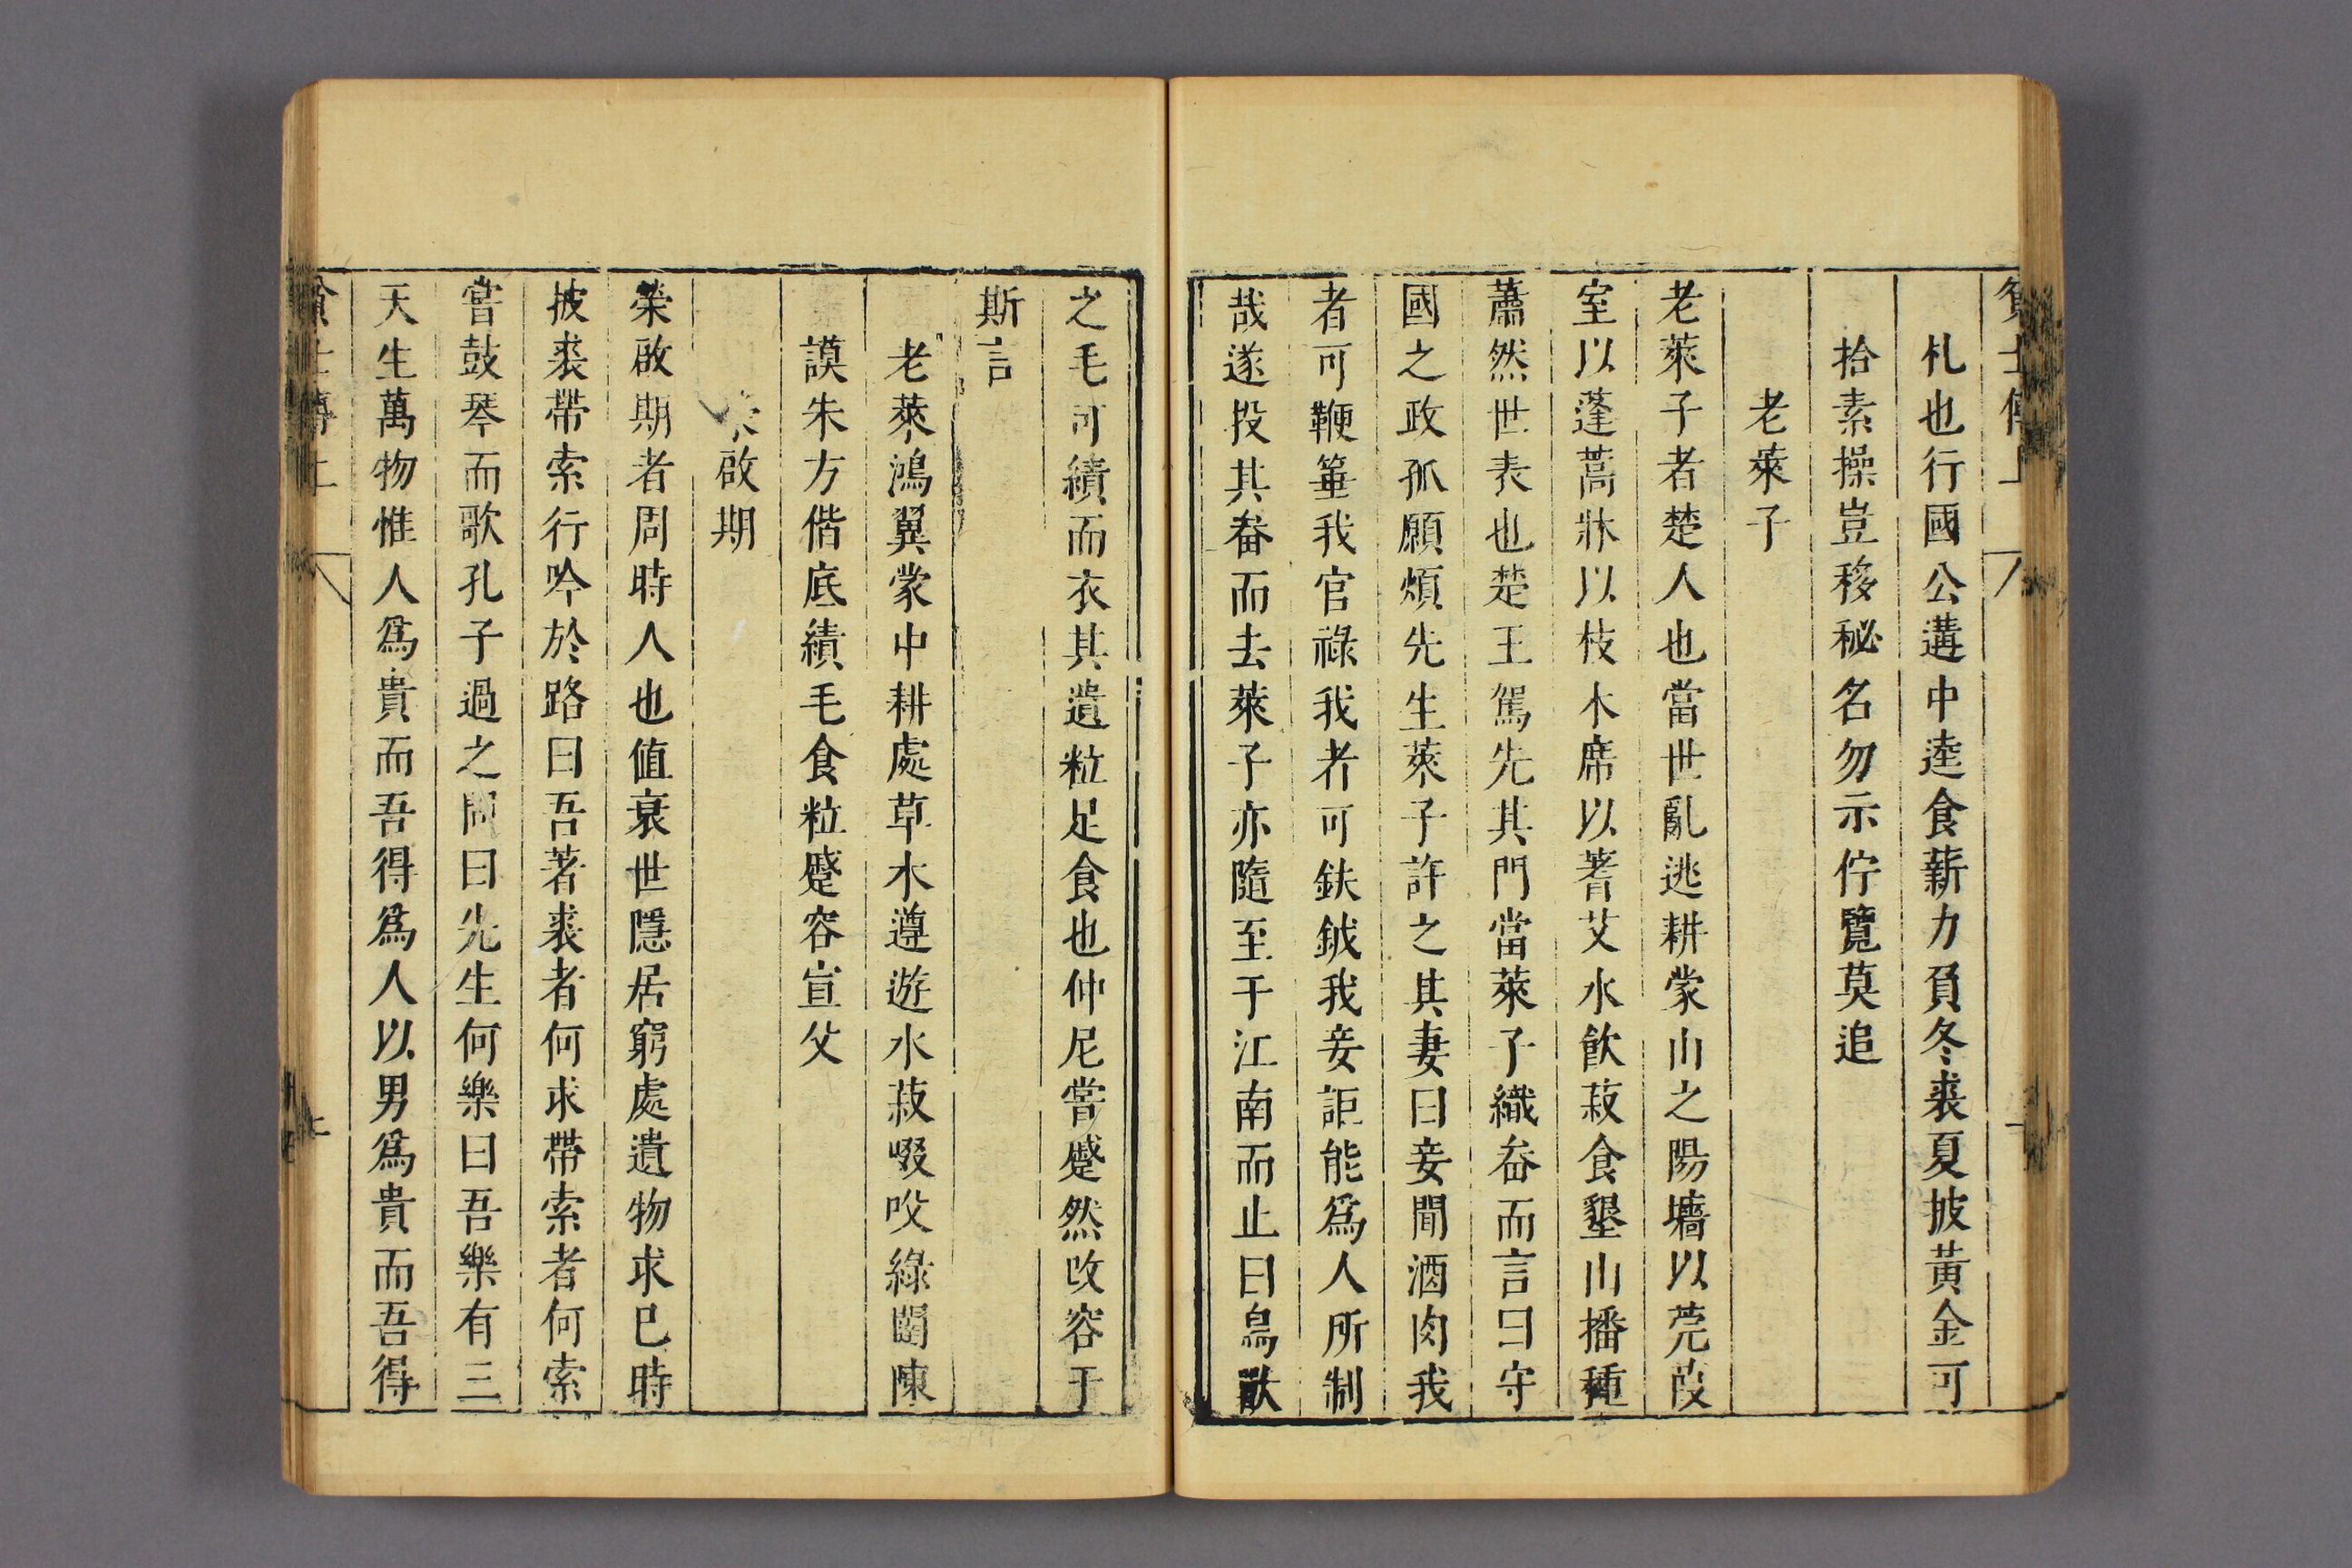 貧士傳上
札也行國公遘中逵食薪力負冬裘夏披黃金可
拾素操豈移秘名勿示佇覽莫追
老萊子
老萊子者楚人也當世亂逃耕蒙山之陽墻以莞葭
室以蓬蒿牀以枝木席以蓍艾水飲菽食墾山播種
蕭然世表也楚王駕先其門當萊子織畚而言曰守
國之政孤願煩先生萊子許之其妻曰妾聞酒肉我
者可鞭箠我官祿我者可鈇鉞我妾詎能爲人所制
哉遂投其畚而去萊子亦隨至于江南而止曰鳥獸
之毛可績而衣其遺粒足食也仲尼嘗蹙然改容于
斯言
老萊鴻翼蒙中耕處草木遵遊水菽啜咬綠闢陳
謨朱方偕底績毛食粒蹙容宣父
啟期
榮啟期者周時人也値衰世隱居窮處遺物求已時
披裘帶索行吟於路曰吾著裘者何求帶索者何索
嘗鼓琴而歌孔子過之問曰先生何樂曰吾樂有三
天生萬物惟人爲貴而吾得爲人以男爲貴而吾得
貧士傳上